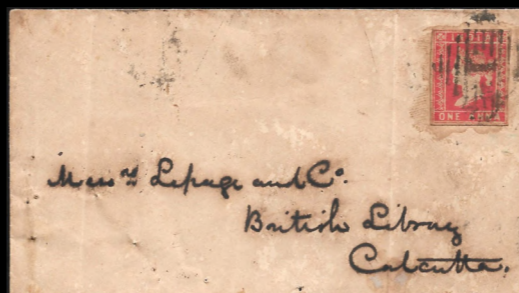 INDIA
ONE ANNA
Messrs Lepage and Co.
British Library
Calcutta.